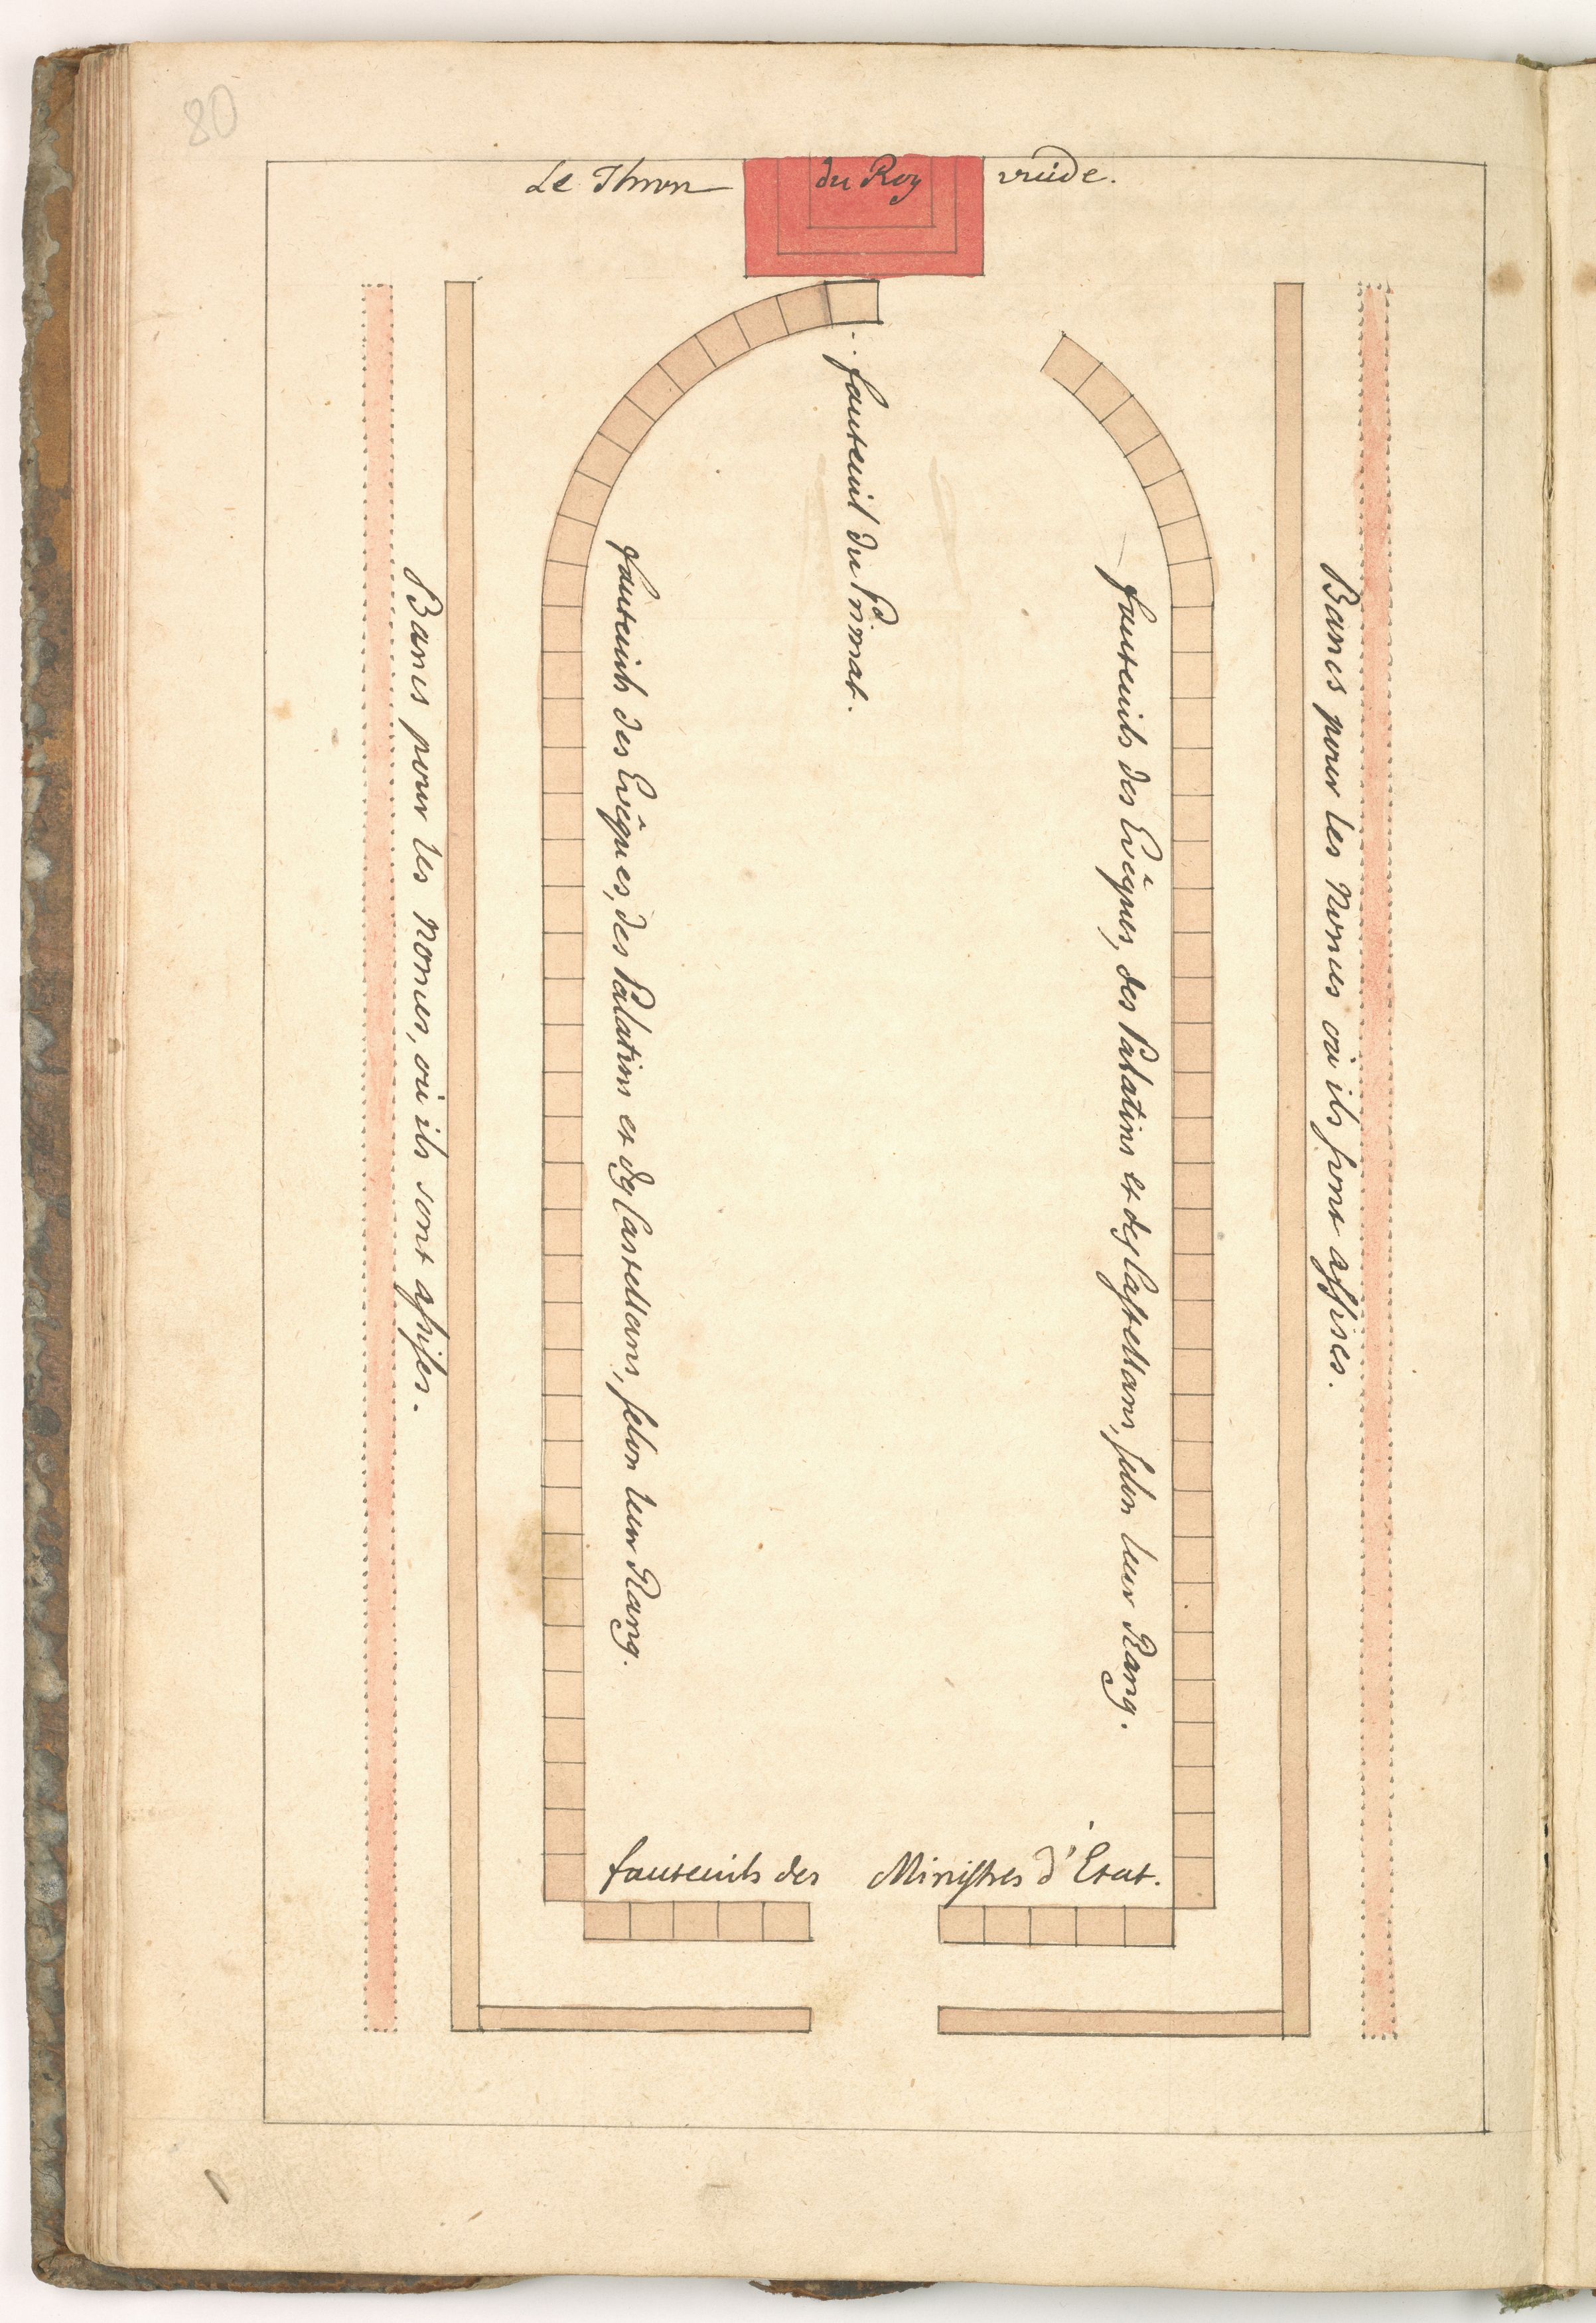 80
Le Thron du Roy vuide.
fauteuil du Primat.
fauteuils des Evêques, des Palatins et des Castellans, selon leur Rang.
fauteuils des Evêques, des Palatins et des Castellans, selon leur Rang.
Bancs pour les Nonces, où ils sont assises.
Bancs pour les Nonces où ils sont assises.
fauteuils des Ministres d'Etat.